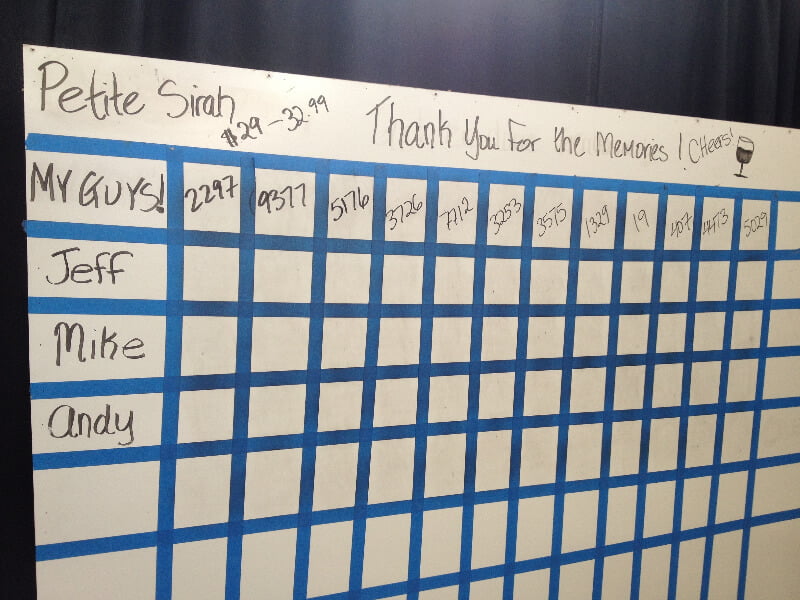 Petite Sirah
$29-32.99
Thank You For the Memories! Cheers!
MY GUYS! 2297 9377 5176 3726 7712 3253 3575 1329 19 407 4473 5029
Jeff
Mike
Andy